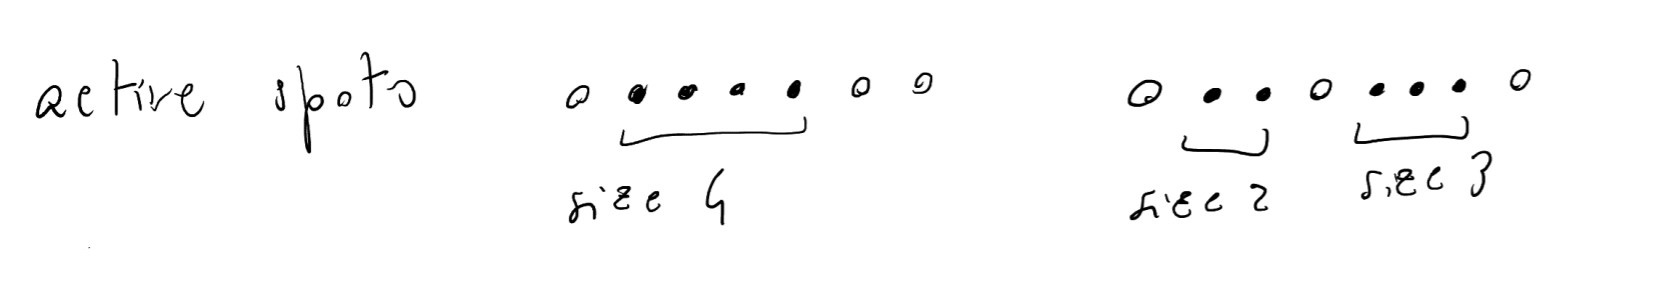 active spots
size 4
size 2
size 3